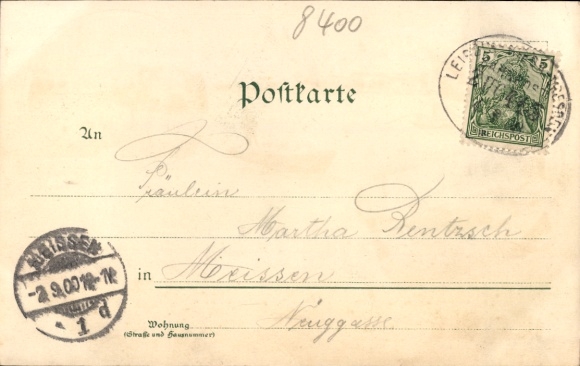 8400
5 5
REICHSPOST
Postkarte
An
Fräulein
Martha Rentzsch
in Meissen
MEISSEN
-2.9.00
1 d
Wohnung
(Straße und Hausnummer)
Neuggasse